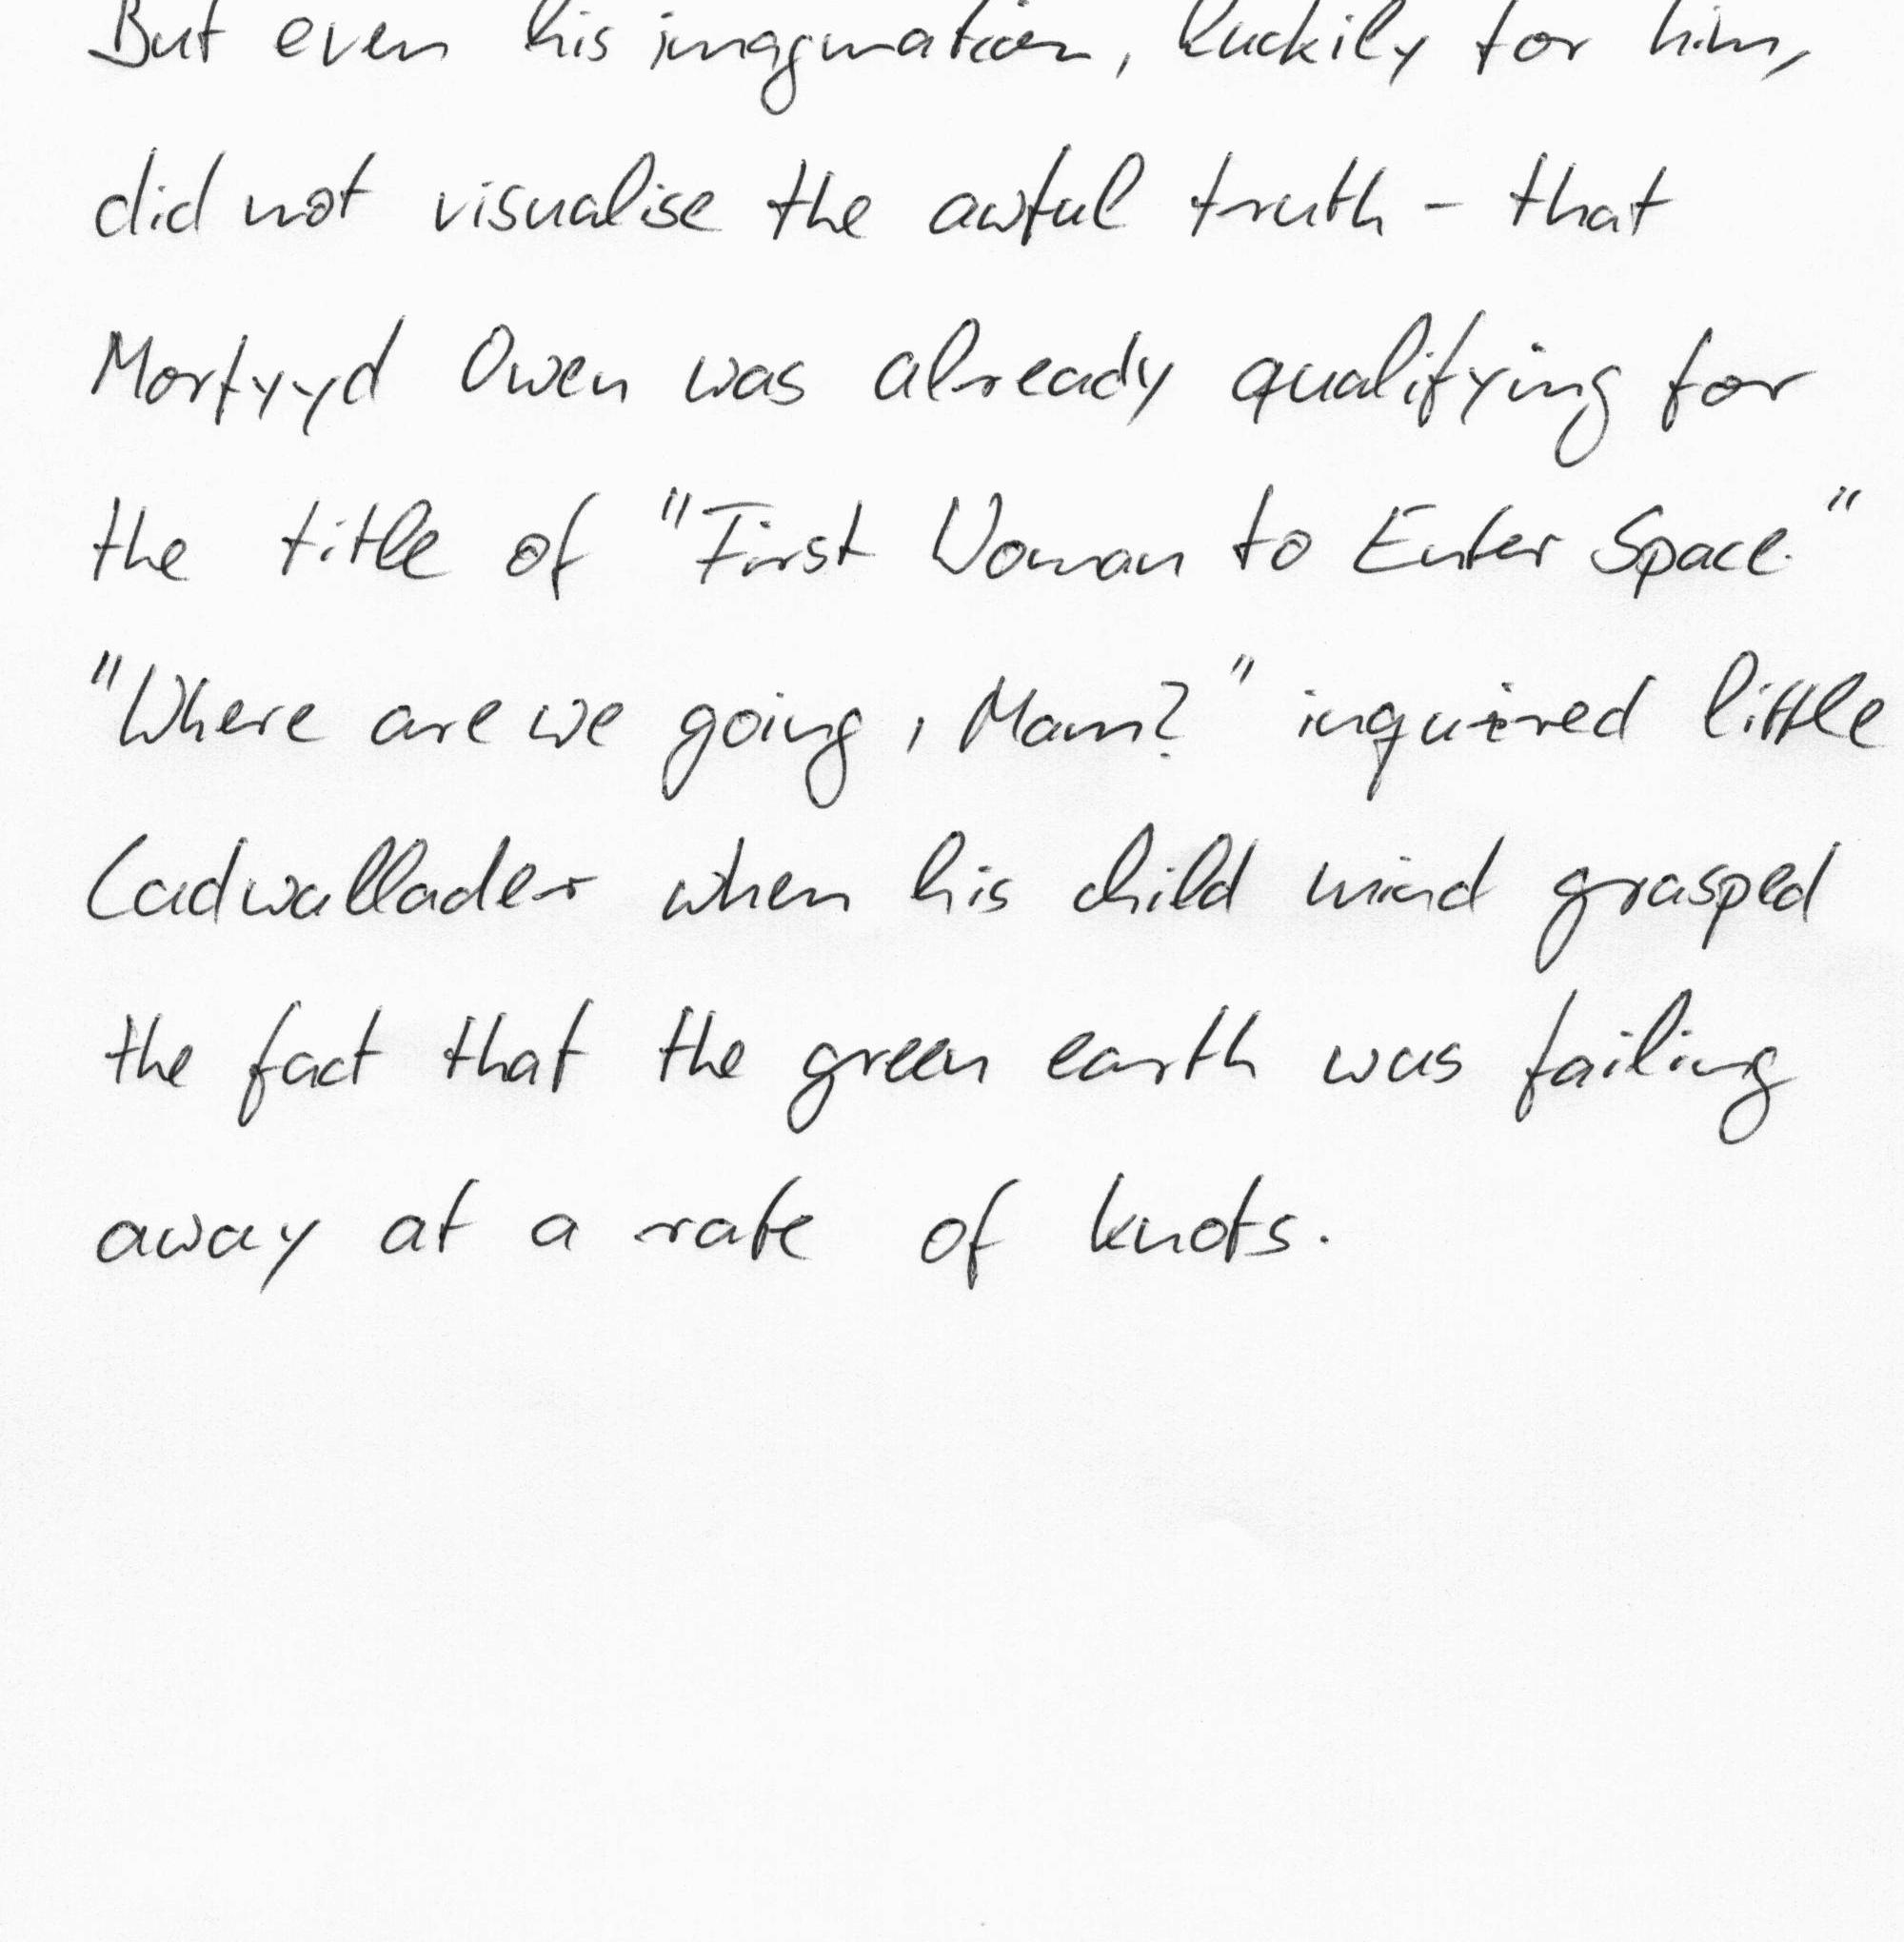 But even his imagination, luckily for him,
did not visualise the awful truth - that
Morfyyd Owen was already qualifying for
the title of "First Woman to Enter Space."
"Where are we going, Mam?" inquired little
Cadwallader when his child mind grasped
the fact that the green earth was failing
away at a rate of knots.